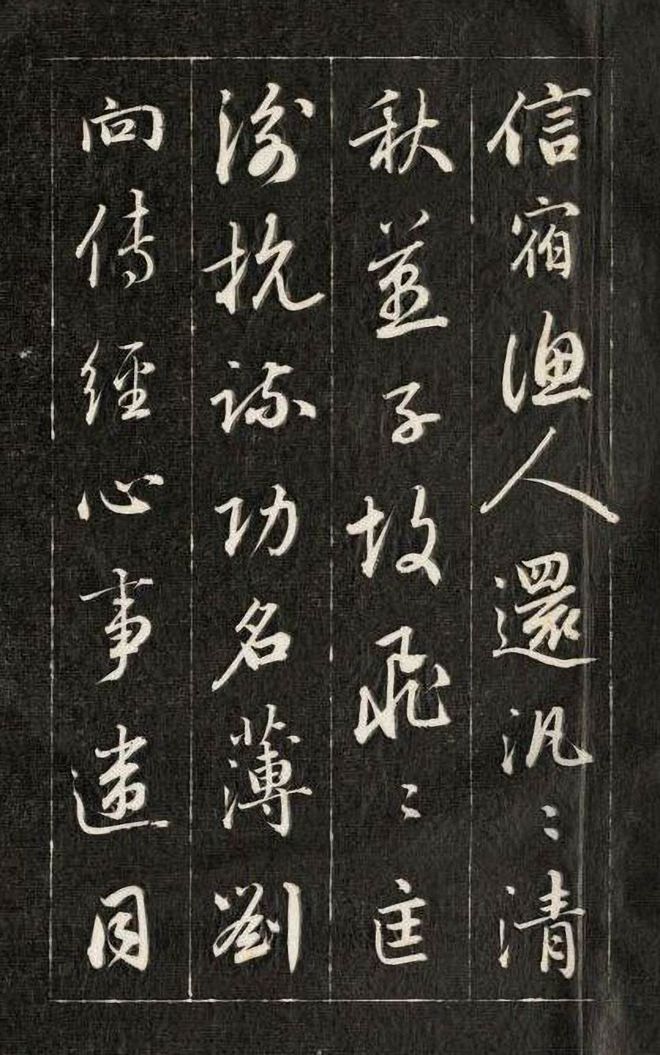 信宿漁人還汎〻清
秋燕子故飛〻匡
衡抗疏功名薄劉
向傳經心事違同